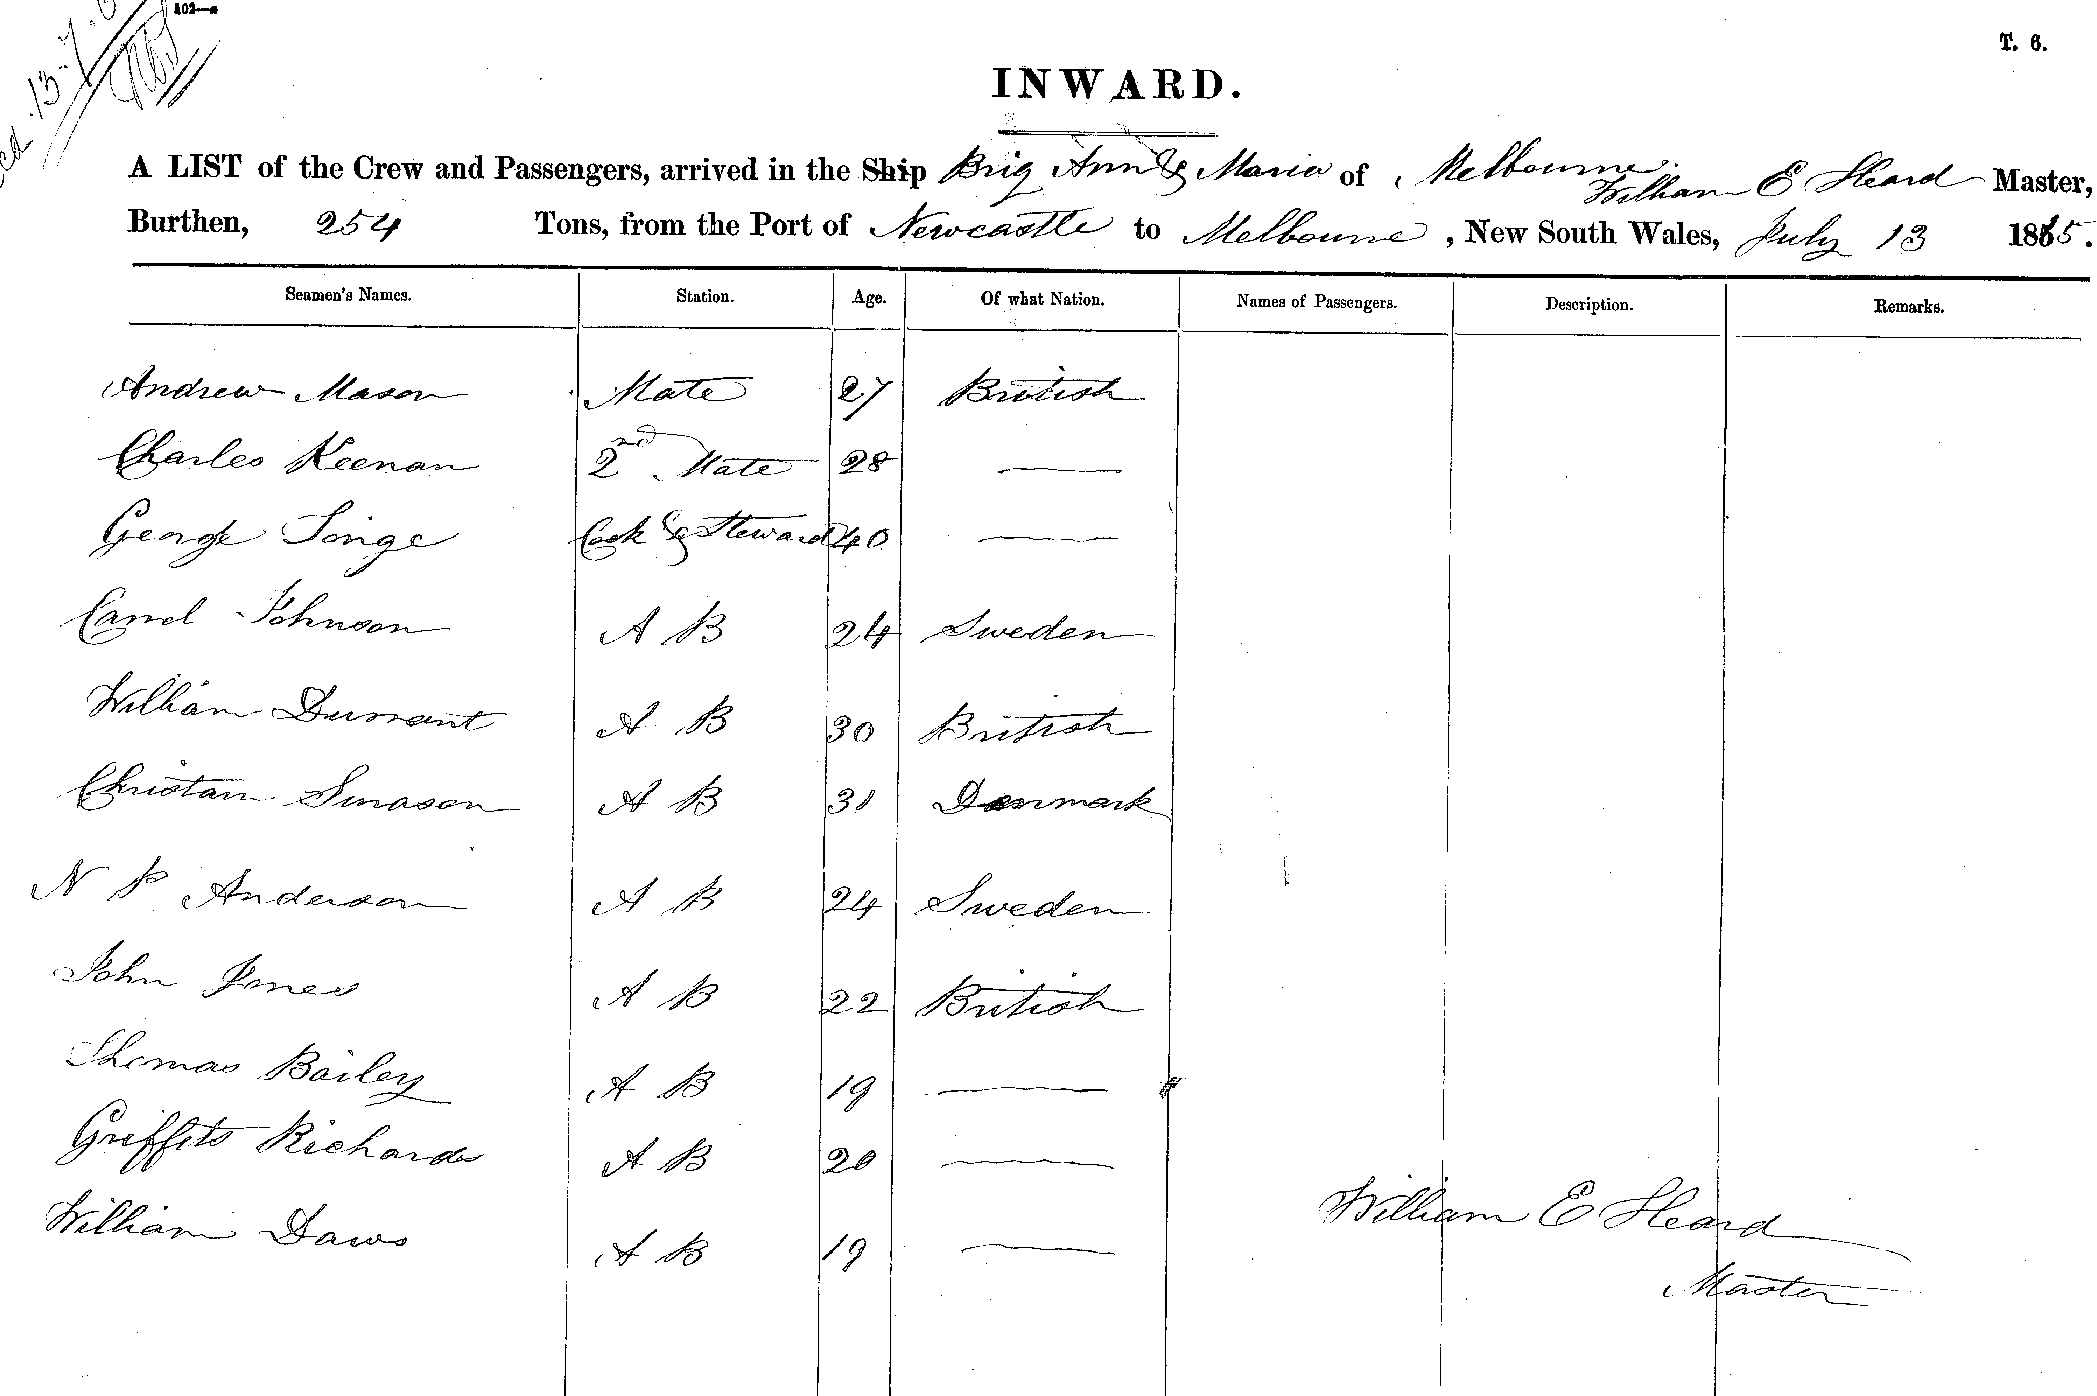 102—a
T. 6.
13. 7. 65
INWARD.
A LIST of the Crew and Passengers, arrived in the Ship Brig Ann & Maria of Melbourne William E Heard Master,
Burthen, 254 Tons, from the Port of Newcastle to Melbourne, New South Wales, July 13 1865.
Seamen's Names. Station. Age. Of what Nation. Names of Passengers. Description. Remarks.
Andrew Mason Mate 27 British
Charles Keenan 2nd Mate 28 —
George Singe Cook & Steward 40 —
Carrel Johnson A B 24 Sweden
William Durrant A B 30 British
Christan Smason A B 31 Denmark
N P Anderson A B 24 Sweden
John Jones A B 22 British
Thomas Bailey A B 19 —
Griffits Richards A B 20 —
William Daws A B 19 —
William E Heard
Master